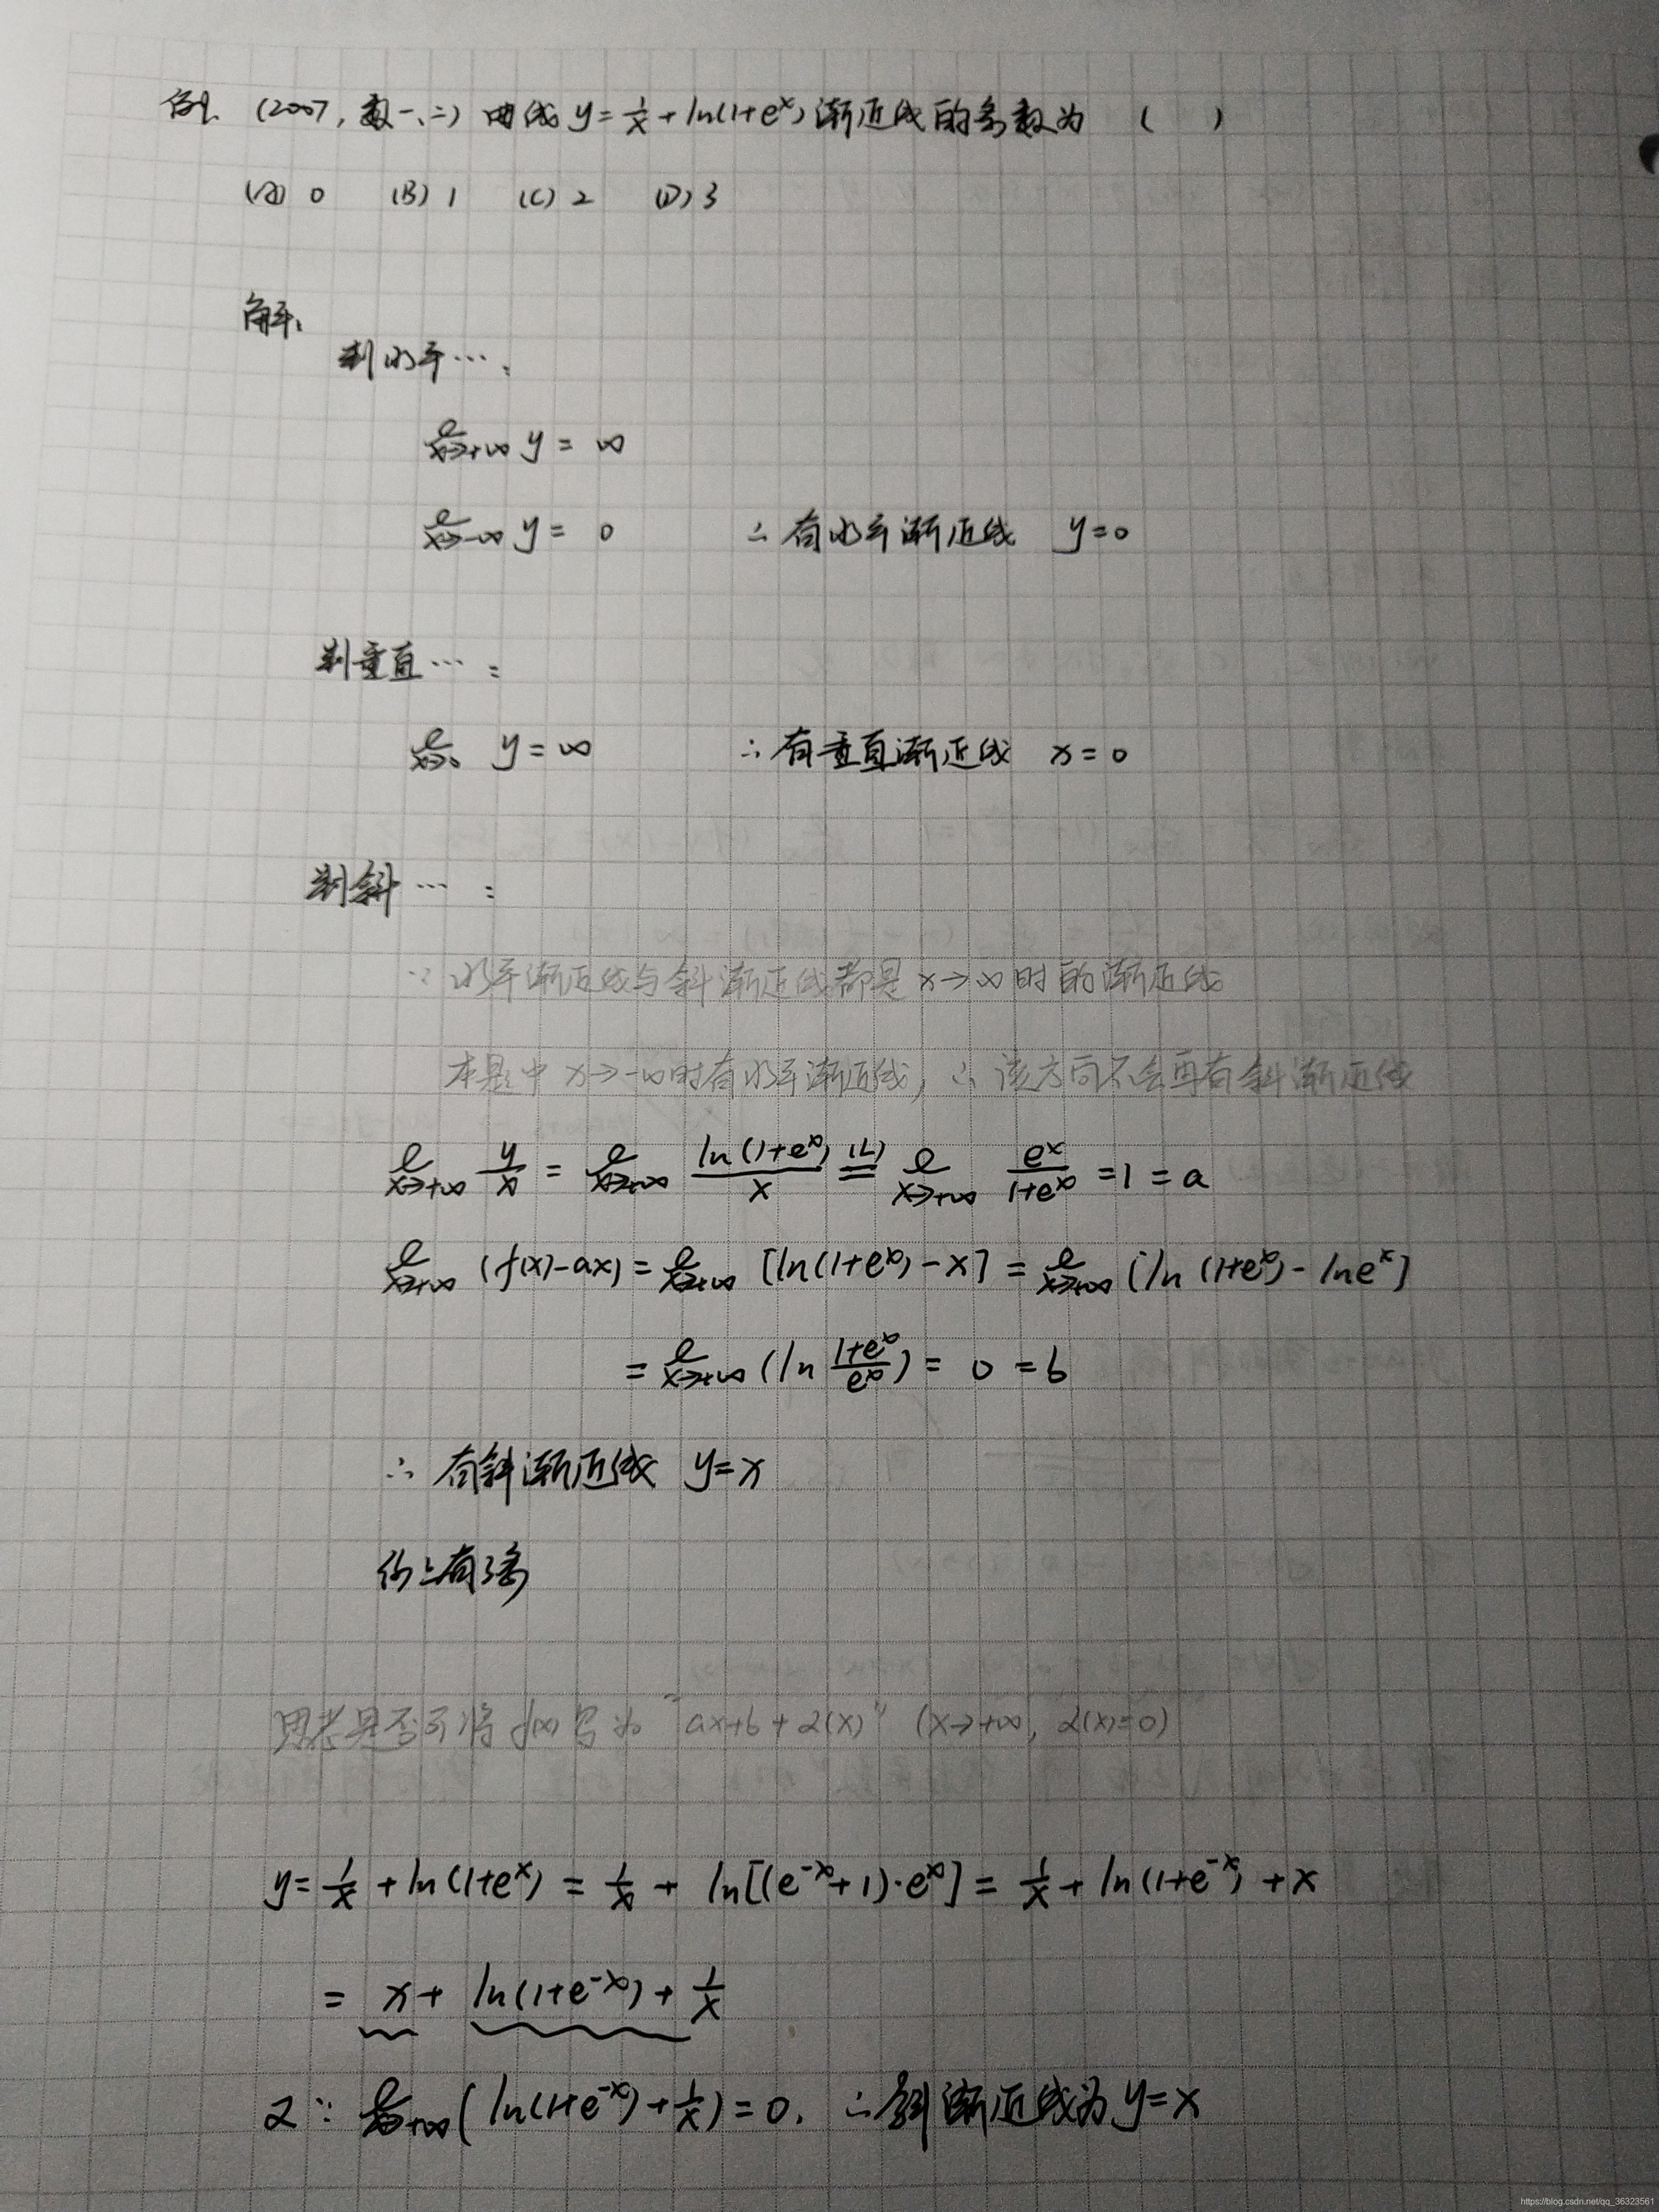 例. (2007, 数一、二) 曲线 y = 1/x + ln(1+e^x) 渐近线的条数为 ( )
(A) 0 (B) 1 (C) 2 (D) 3
解:
判水平…:
lim x→+∞ y = ∞
lim x→-∞ y = 0 ∴ 有水平渐近线 y=0
判垂直…:
lim x→0 y = ∞ ∴ 有垂直渐近线 x=0
判斜…:
∵ 水平渐近线与斜渐近线都是 x→∞ 时的渐近线
本题中 x→-∞ 时有水平渐近线, ∴ 该方向不会再有斜渐近线
lim x→+∞ y/x = lim x→+∞ ln(1+e^x)/x (L)= lim x→+∞ e^x/(1+e^x) = 1 = a
lim x→+∞ (f(x)-ax) = lim x→+∞ [ln(1+e^x) - x] = lim x→+∞ [ln(1+e^x) - lne^x]
= lim x→+∞ (ln (1+e^x)/e^x) = 0 = b
∴ 有斜渐近线 y=x
综上有3条
思考是否可将 f(x) 写为 "ax+b+α(x)" (x→+∞, α(x)=0)
y = 1/x + ln(1+e^x) = 1/x + ln[(e^-x+1)·e^x] = 1/x + ln(1+e^-x) + x
= x + ln(1+e^-x) + 1/x
又∵ lim x→+∞ (ln(1+e^-x) + 1/x) = 0. ∴ 斜渐近线为 y=x
https://blog.csdn.net/qq_36323561